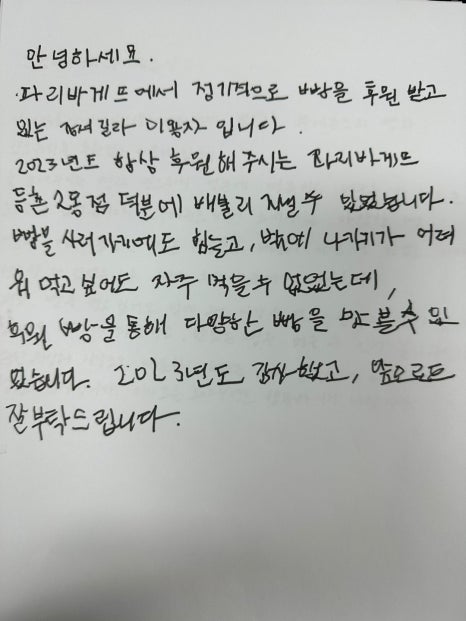 안녕하세요.
파리바게뜨에서 정기적으로 빵을 후원 받고
있는 이용자 입니다.
2023년도 항상 후원해 주시는 파리바게뜨
등촌2동점 덕분에 배불리 지낼 수 있었습니다.
빵을 사러가기에도 힘들고, 밖에 나가기가 어려
워 먹고 싶어도 자주 먹을 수 없었는데,
후원 빵을 통해 다양한 빵을 맛 볼 수 있
었습니다. 2023년도 감사했고, 앞으로도
잘 부탁드립니다.